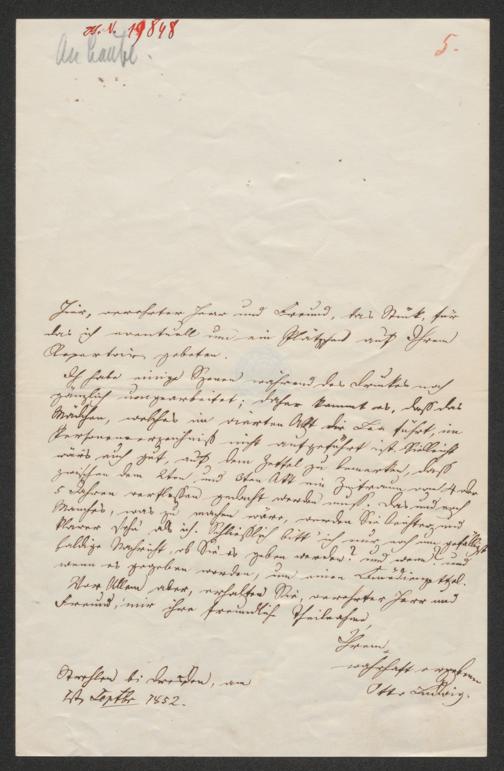 H. I. N. 19848
An Laube.
5.
Hier, verehrter Herr und Freund, das Stück, für
das ich eventuell um ein Plätzchen auf Ihrem
Repertoir gebeten.
Ich habe einige Szenen während des Druckes noch
gänzlich umgearbeitet; daher kommt es, daß das
Mädchen, welches im vierten Akt die Lea führt, im
Personenverzeichniß nicht aufgeführt ist. Vielleicht
wär's auch gut, auf dem Zettel zu bemerken, daß
zwischen dem 2ten und 3ten Akt ein Zeitraum von 4 oder
5 Jahren verflossen gedacht werden muß. Das und noch
Manches, was zu machen wäre, werden Sie leichter und
klarer sehn als ich. Schließlich bitt' ich nur noch um gefälligst
baldige Nachricht, ob Sie es geben werden? und wenn? und
wenn es gegeben worden, um einen
Vor Allem aber, erhalten Sie, verehrter Herr und
Freund, mir ihre freundliche Theilnahme,
Ihrem
wahrhaft ergebenen
Otto Ludwig.
Strehlen bei Dresden, am
Septbr 1852.